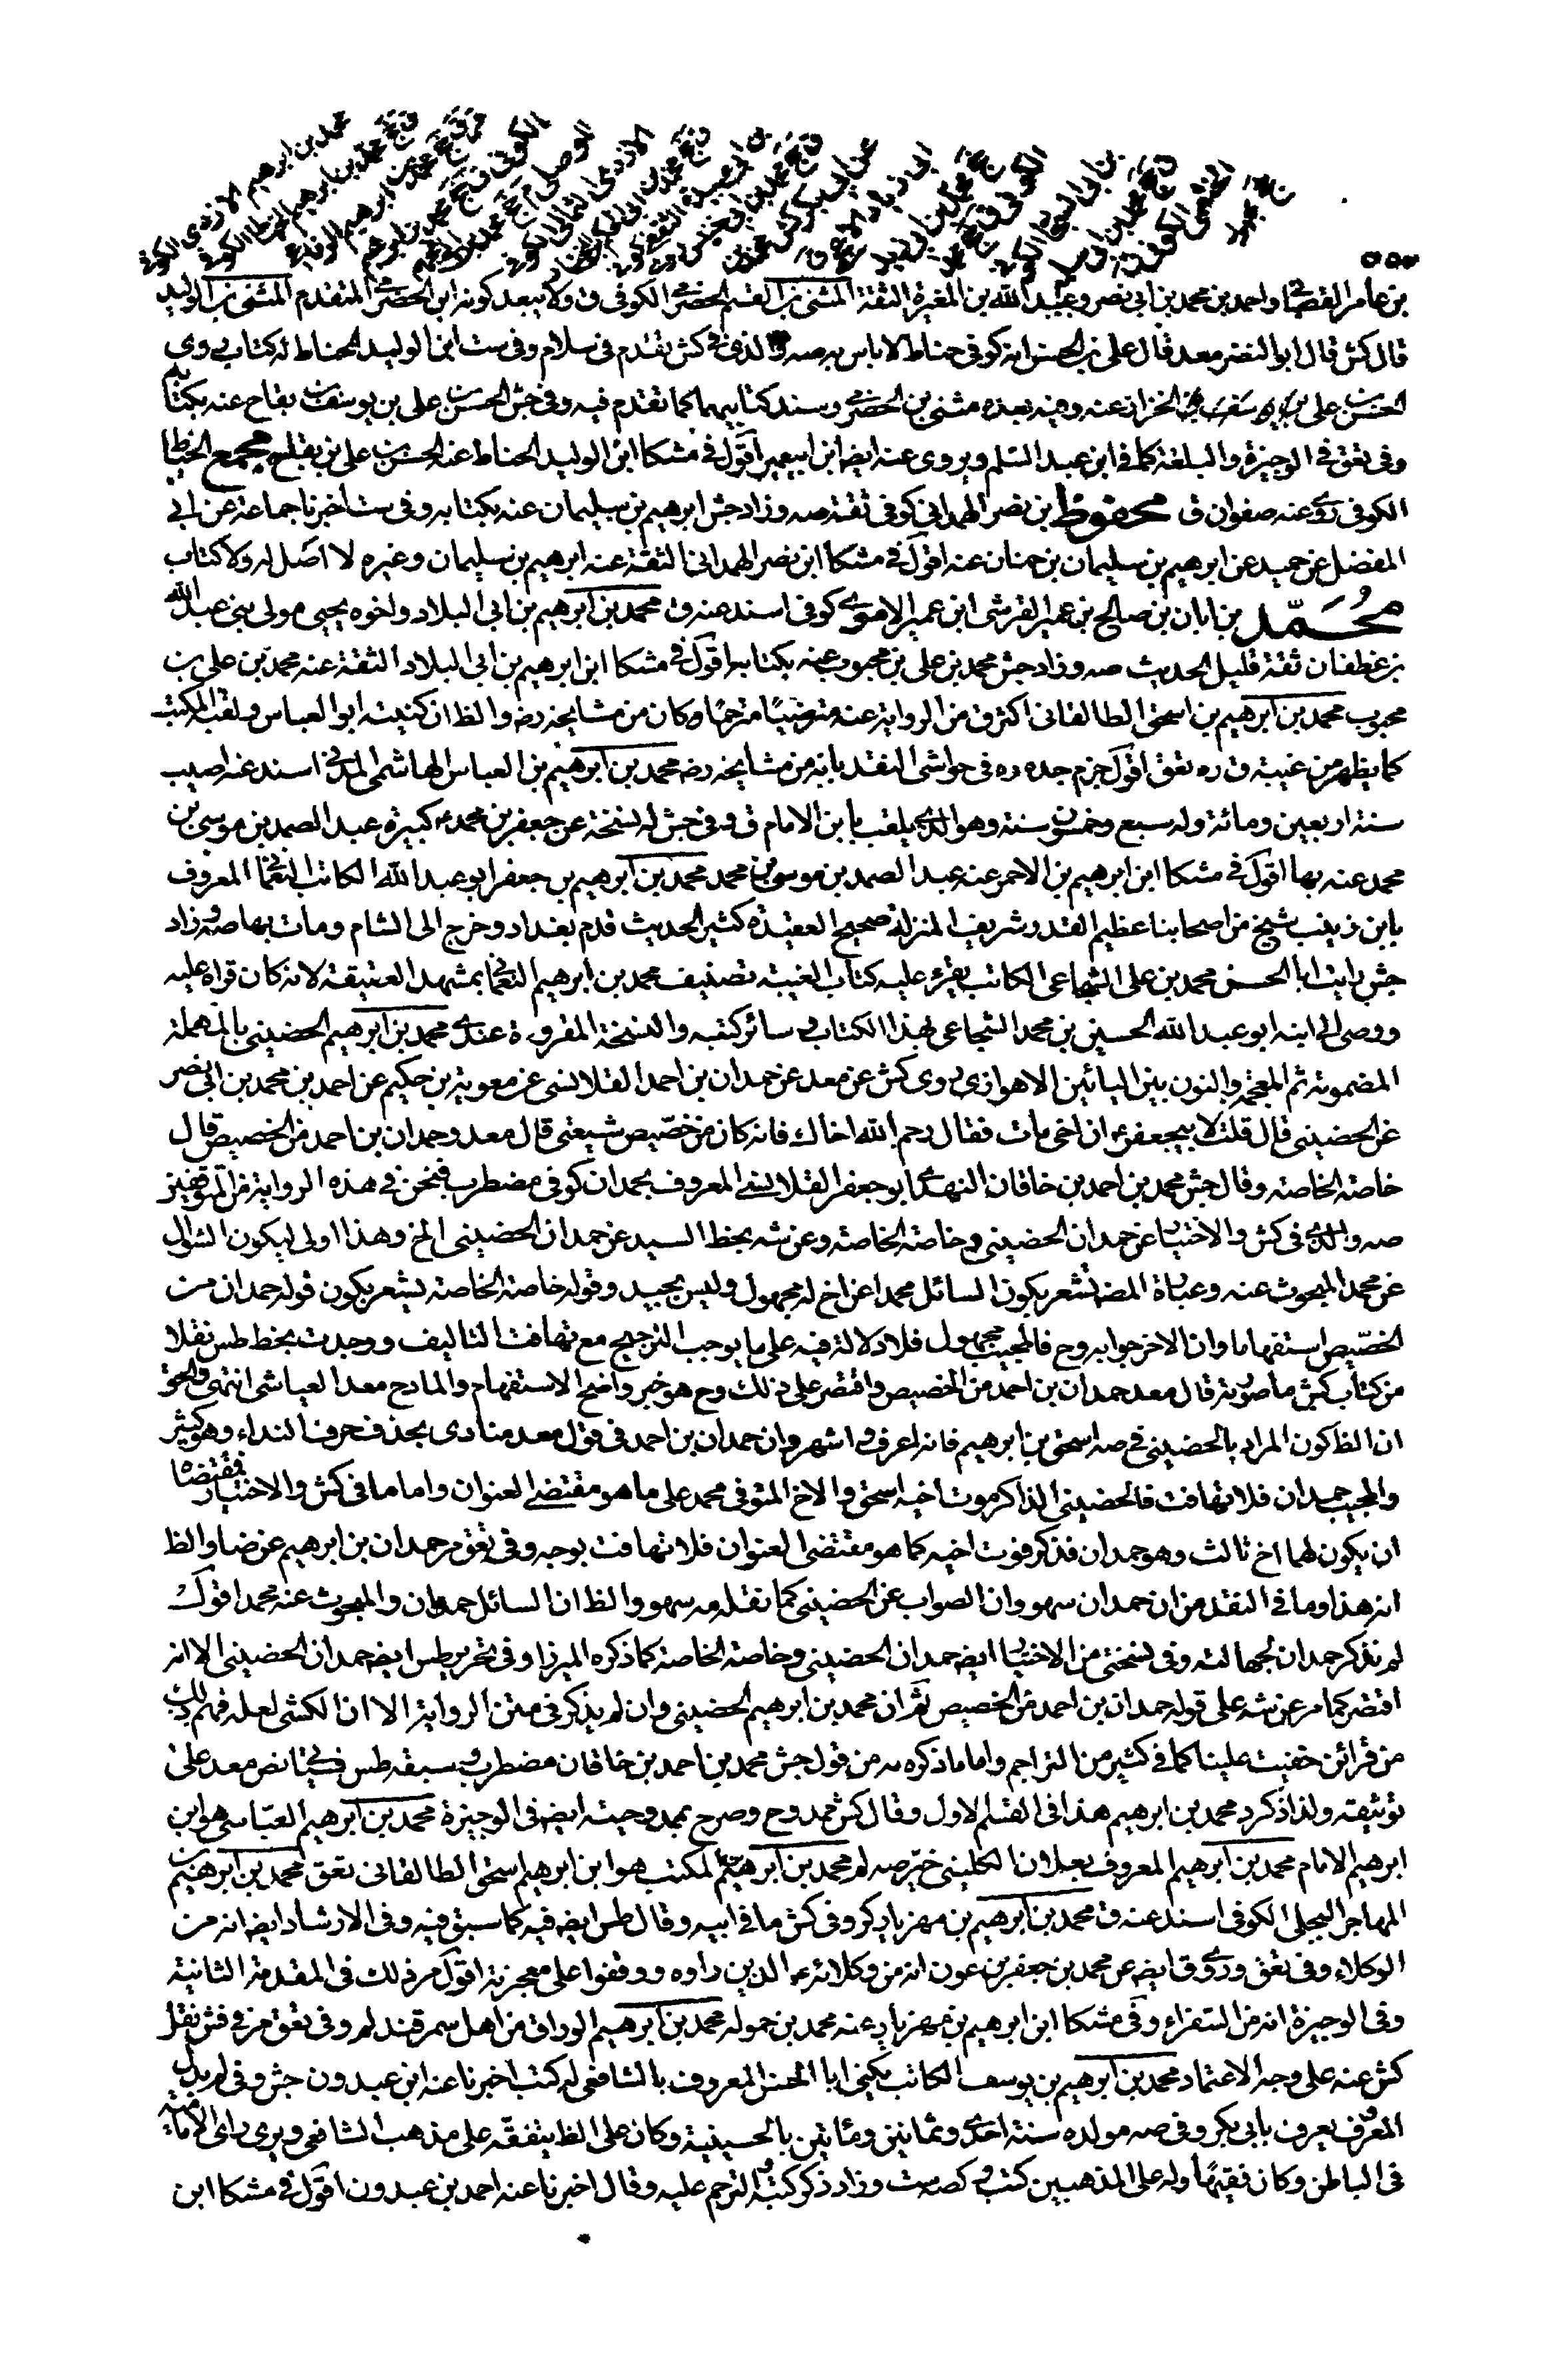 بن عامر القصبانى واحمد بن محمد بن ابى نصر وعبد الله بن المغيرة الثقة المثنى بن القسم الحضرمى الكوفى ق ولا يبعد كونه ابن الحضرمى المتقدم المثنى بن الوليد
قال كش قال ابو النضر معد قال على بن الحسن انه كوفى حناط لا باس به صه والذى فى كش تقدم فى سلام وفى ست ابن الوليد الحناط له كتاب روى
الحسن بن على بن يوسف الخزاز عنه وفيه بعده مثنى بن الحضرمى وسند كتابيهما كما تقدم فيه وفى جش الحسن بن على بن يوسف بن بقاح عنه بكتابه
وفى تعق فى الوجيزة والبلغة كما فى ابن عبد السلم ويروى عنه ايضا ابن ابيعمير اقول فى مشكا ابن الوليد الحناط عنه الحسن بن على بن بقاح مجمع الخياط
الكوفى روى عنه صفوان ق محفوظ بن نصر الهمدانى كوفى ثقة صه وزاد جش ابرهيم بن سليمان عنه بكتابه وفى ست اخبرنا جماعة عن ابى
المفضل عن حميد عن ابرهيم بن سليمان بن حنان عنه اقول فى مشكا ابن نصر الهمدانى الثقة عنه ابرهيم بن سليمان وغيره لا اصل له ولا كتاب
محمد بن ابان بن صالح بن عمير القرشى ابن عمير الاموى كوفى اسند عنه ق محمد بن ابرهيم بن ابى البلاد واخوه يحيى مولى بنى عبد الله
بن غطفان ثقة قليل الحديث صه وزاد جش محمد بن على بن محبوب عنه بكتابه اقول فى مشكا ابن ابرهيم بن ابى البلاد الثقة عنه محمد بن على بن
محبوب محمد بن ابرهيم بن اسحق الطالقانى اكثر ق من الرواية عنه مترضيا مترحما وكان من مشايخه رضه والظ ان كنيته ابو العباس ولقبه المكتب
كما يظهر من غيبته ق ره تعق اقول جزم جده ره فى حواشى النقد بانه من مشايخه رضه محمد بن ابرهيم بن العباس الهاشمى المدنى اسند عنه اصيب
سنة اربعين ومائة وله سبع وخمسون سنة وهو الذى يلقب بابن الامام ق وفى جش له نسخة عن جعفر بن محمد ع كبيرة عبد الصمد بن موسى بن
محمد عنه بها اقول فى مشكا ابن ابرهيم بن الاحمر عنه عبد الصمد بن موسى بن محمد محمد بن ابرهيم بن جعفر ابو عبد الله الكاتب النعمانى المعروف
بابن زينب شيخ من اصحابنا عظيم القدر شريف المنزلة صحيح العقيدة كثير الحديث قدم بغداد وخرج الى الشام ومات بها صه وزاد
جش رايت ابا الحسن محمد بن على الشجاعى الكاتب يقرء عليه كتاب الغيبة تصنيف محمد بن ابرهيم النعمانى بمشهد العتيقة لانه كان قراه عليه
ووصى لى ابنه ابو عبد الله الحسين بن محمد الشجاعى بهذا الكتاب وسائر كتبه والنسخة المقروءة عندى محمد بن ابرهيم الحضينى بالمهملة
المضمومة ثم المعجمة والنون بين اليائين الاهوازى روى كش عن معد عن حمدان بن احمد القلانسى عن معوية بن حكيم عن احمد بن محمد بن ابى نصر
عن الحضينى قال قلت لابيجعفر ع ان اخى مات فقال رحم الله اخاك فانه كان من خصيص شيعتى قال معد وحمدان بن احمد من الخصيص قال
خاصة الخاصة وقال جش محمد بن احمد بن خاقان النهدى ابو جعفر القلانسى المعروف بحمدان كوفى مضطرب فنحن فى هذه الرواية من المتوقفين
صه والذى فى كش والاختيار عن حمدان الحضينى وخاصة الخاصة وعن شه بخط السيد عن حمدان الحضينى الخ وهذا اولى ليكون السؤال
عن محمد المبحوث عنه وعبارة المص تشعر بكون السائل محمدا عن اخ له مجهول وليس بجيد وقوله خاصة الخاصة يشعر بكون قوله حمدان من
الخصيص استفهاما وان الاخر جوابه وح فالمجيب مجهول فلا دلالة فيه على ما يوجب الترجيح مع تهافت التاليف ووجدت بخط طس نقلا
من كتاب كش ما صورته قال معد حمدان بن احمد من الخصيص واقتصر على ذلك وح هو خبر واضح الاستفهام والمادح معد العياشى انتهى والحق
ان الظ كون المراد بالحضينى فى صه اسحق بن ابرهيم فانه اعرف واشهر وان حمدان بن احمد فى قول معد منادى بحذف حرف النداء وهو كثير
والمجيب حمدان فلا تهافت فالحضينى الذاكر موت اخيه اسحق والاخ المتوفى محمد على ما هو مقتضى العنوان واما ما فى كش والاختيار فمقتضاه
ان يكون لهما اخ ثالث وهو حمدان فذكر فوت اخيه كما هو مقتضى العنوان فلا تهافت بوجه وفى تعق مر حمدان بن ابرهيم عن ضا والظ
انه هذا وما فى النقد من ان حمدان سهو وان الصواب عن الحضينى كما نقله مه سهو والظ ان السائل حمدان والمبحوث عنه محمد اقول
لم نذكر حمدان لجهالته وفى نسختى من الاختيار ايضا حمدان الحضينى وخاصة الخاصة كما ذكره الميرزا وفى تحرير طس ايضا حمدان الحضينى الا انه
اقتصر كما مر عن شه على قوله حمدان بن احمد من الخصيص ثم ان محمد بن ابرهيم الحضينى وان لم يذكر فى متن الرواية الا ان الكشى لعله فهم ذلك
من قرائن خفيت علينا كما فى كثير من التراجم واما ما ذكره مه من قول جش محمد بن احمد بن خاقان مضطرب سبقه طس فياتى نص معد على
توثيقه ولذا ذكر د محمد بن ابرهيم هذا فى القسم الاول وقال كش ممدوح وصرح بممدوحيته ايضا فى الوجيزة محمد بن ابرهيم العباسى هو ابن
ابرهيم الامام محمد بن ابرهيم المعروف بعلان الكلينى خير صه لم محمد بن ابرهيم المكتب هو ابن ابرهيم اسحق الطالقانى تعق محمد بن ابرهيم بن
المهاجر البجلى الكوفى اسند عنه ق محمد بن ابرهيم بن مهزيار كر وفى كش ما فى ابيه وقال طس ايضا فيه كما سبق فيه وفى الارشاد ايضا انه من
الوكلاء وفى تعق وروى ق ايضا عن محمد بن جعفر بن عون انه من وكلائه ع الذين راوه ووقفوا على معجزته اقول مر ذلك فى المقدمة الثانية
وفى الوجيزة انه من السفراء وفى مشكا ابن ابرهيم بن مهزيار عنه محمد بن حمولة محمد بن ابرهيم الوراق من اهل سمرقند لم وفى تعق مر فى فش نقل
كش عنه على وجه الاعتماد محمد بن ابرهيم بن يوسف الكاتب يكنى ابا الحسن المعروف بالشافعى له كتب اخبرنا عنه ابن عبدون جش وفى لم بدل
المعروف يعرف بابى بكر وفى صه مولده سنة احدى وثمانين ومأتين بالحسينية وكان على الظ يتفقه على مذهب الشافعى ويرى راى الامامية
فى الباطن وكان فقيها وله على المذهبين كتب كصه ست وزاد ذكر كتبه والترحم عليه وقال اخبرنا عنه احمد بن عبدون اقول فى مشكا ابن